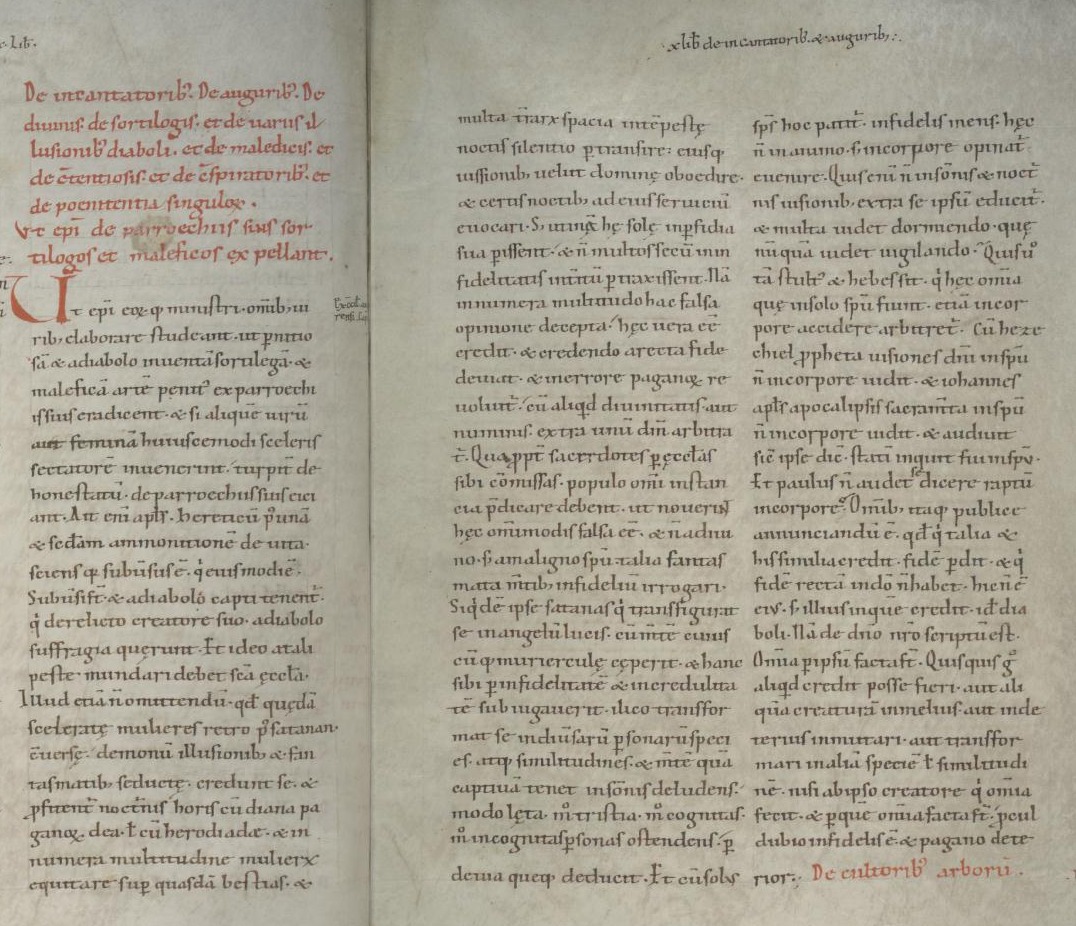 c. Lib̄.
De incantatorib'. De augurib'. De
diuinis. de sortilogis. et de uariis il
lusionib' diaboli. et de maledicis. et
de c̄tentiosis. et de c̄spiratorib'. et
de poenitentia singuloꝝ.
Vt ep̄i de parroechiis suis sor
tilogos et maleficos expellant.
Ut ep̄i eoꝝq; ministri. om̄ib; ui
rib; elaborare studeant. ut p̄nitio
sā & a diabolo inuentā sortilegā. &
maleficā artē penit' ex parroechi
is suis eradicent. & si aliquē uirū
aut feminā huiuscemodi sceleris
sectatorē inuenerint. turpit̄ de
honestatū. de parroechiis suis eici
ant. Ait eni ap̄ls. hereticū p' unā
& sedām ammonitionē deuita.
sciens q; subūsus ē. q̇ eiusmodi ē.
Subūsi sr̄. & a diabolo capti tenent̄.
q̇ derelicto creatore suo. a diabolo
suffragia quęrunt. Et ideo a tali
peste mundari debet sc̄a ęccl̄a.
Illud etiā ñ omittendū. qd̄ quędā
sceleratę mulieres retro p' satanan
c̄uersę. demonū illusionib; & fan
tasmatib; seductę. credunt se. &
p̄fitent̄ nocturnis horis cū diana pa
ganoꝝ dea. ł cū herodiade. & in
numera multitudine mulierꝝ
equitare sup̄ quasdā bestias. &
x lib̄ de incantatorib. & augurib;
multa t̄rarꝝ spacia intēpestę
noctis silentio p̄transire. eiusq;
iussionib; uelut dominę oboedire.
& certis noctib; ad eius seruiciū
euocari. S; utinā hę solę in p̄fidia
sua p̄issent. & ñ multos secū in in
fidelitatis intitū p̄traxissent. Nā
innumera multitudo hac falsa
opinione decepta. hęc uera eē
credit. & credendo a recta fide
deuiat. & in errore paganoꝝ re
uoluit̄. cū aliqd̄ diuinitatis aut
numinis. extra unū dm̄ arbitra
t̄. Qua p̄pt̄ sacerdotes p̄ ęccl̄as
sibi cōmissas. populo om̄i instan
cia p̄dicare debent. ut nouerint
hęc om̄imodis falsa eē. & ñ a diui
no. s; a maligno spū talia fantas
mata m̄tib; infideliū irrogari.
Siqdē ipse satanas q̇ transfigurat
se in angelū lucis. cū m̄tē cuius
cūq; murierculę cęperit. & hanc
sibi p̄ infidelitatē & incredulita
tē subiugauerit. ilico transfor
mat se in diūsarū p̄sonarū speci
es. atq; similitudines. & m̄tē quā
captiuā tenet in sōnis deludens.
modo lęta. m̊ tristia. m̊ cognitas.
m̊ incognitas p̄sonas ostendens. p̄
deuia queq; deducit. Et cū solus
sp̄s hoc patit̄. infidelis mens. hęc
ñ in animo. s; in corpore opinat̄
euenire. Quis eni ñ in sōnis & noct̄
nis uisionib; extra se ipsū educit̄.
& multa uidet dormiendo. quę
nūquā uidet uigilando. Quis ů
tā stult' & hebes sit. q̇ hęc om̄ia
quę in solo spū fiunt. etiā in cor
pore accidere arbitret̄. Cū heze
chiel p̄pheta uisiones dn̄i in spū
ñ in corpore uidit. & iohannes
apl̄s apocalipsis sacram̄ta in spū
ñ in corpore uidit. & audiuit
sic̄ ipse dic̄. statī inquit fui in spū.
Et paulus ñ audet se dicere raptū
in corpore. Om̄ib; itaq; publice
annunciandū ē. qd̄ q̇ talia &
his similia credit. fidē p̄dit. & q̇
fidē rectā in dō ñ habet. hic ñ ē
eius. s; illius in quē credit. id ē dia
boli. Nā de dn̄o nr̄o scriptū est.
Om̄ia p̄ ipsū facta st̄. Quisquis g̊
aliqd credit posse fieri. aut ali
quā creaturā in melius. aut in de
terius inmutari. aut transfor
mari in aliā speciē ł similitudi
nē. nisi ab ipso creatore q̇ om̄ia
fecit. & p̄ quē om̄ia facta st̄. p̄cul
dubio infidelis ē. & pagano dete
rior. De cultorib' arborū.